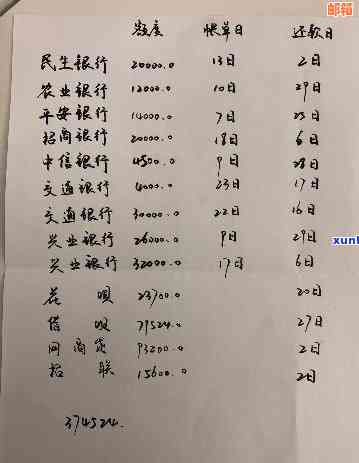 邮箱
额度 帐单日 还款日
民生银行 20000.0 13日 2日
农业银行 12000.0 10日 29日
平安银行 14000.0 7日 25日
招商银行 20000.0 18日 6日
中信银行 4500.0 9日 28日
交通银行 4000.0 23日 17日
交通银行 30000.0 22日 16日
兴业银行 26000.0 9日 29日
兴业银行 32000.0 17日 6日
花呗 23700.0 20日
借呗 79524.0 27日
网商贷 93200.0 2日
招联 15600.0 2日
374524.
xunl